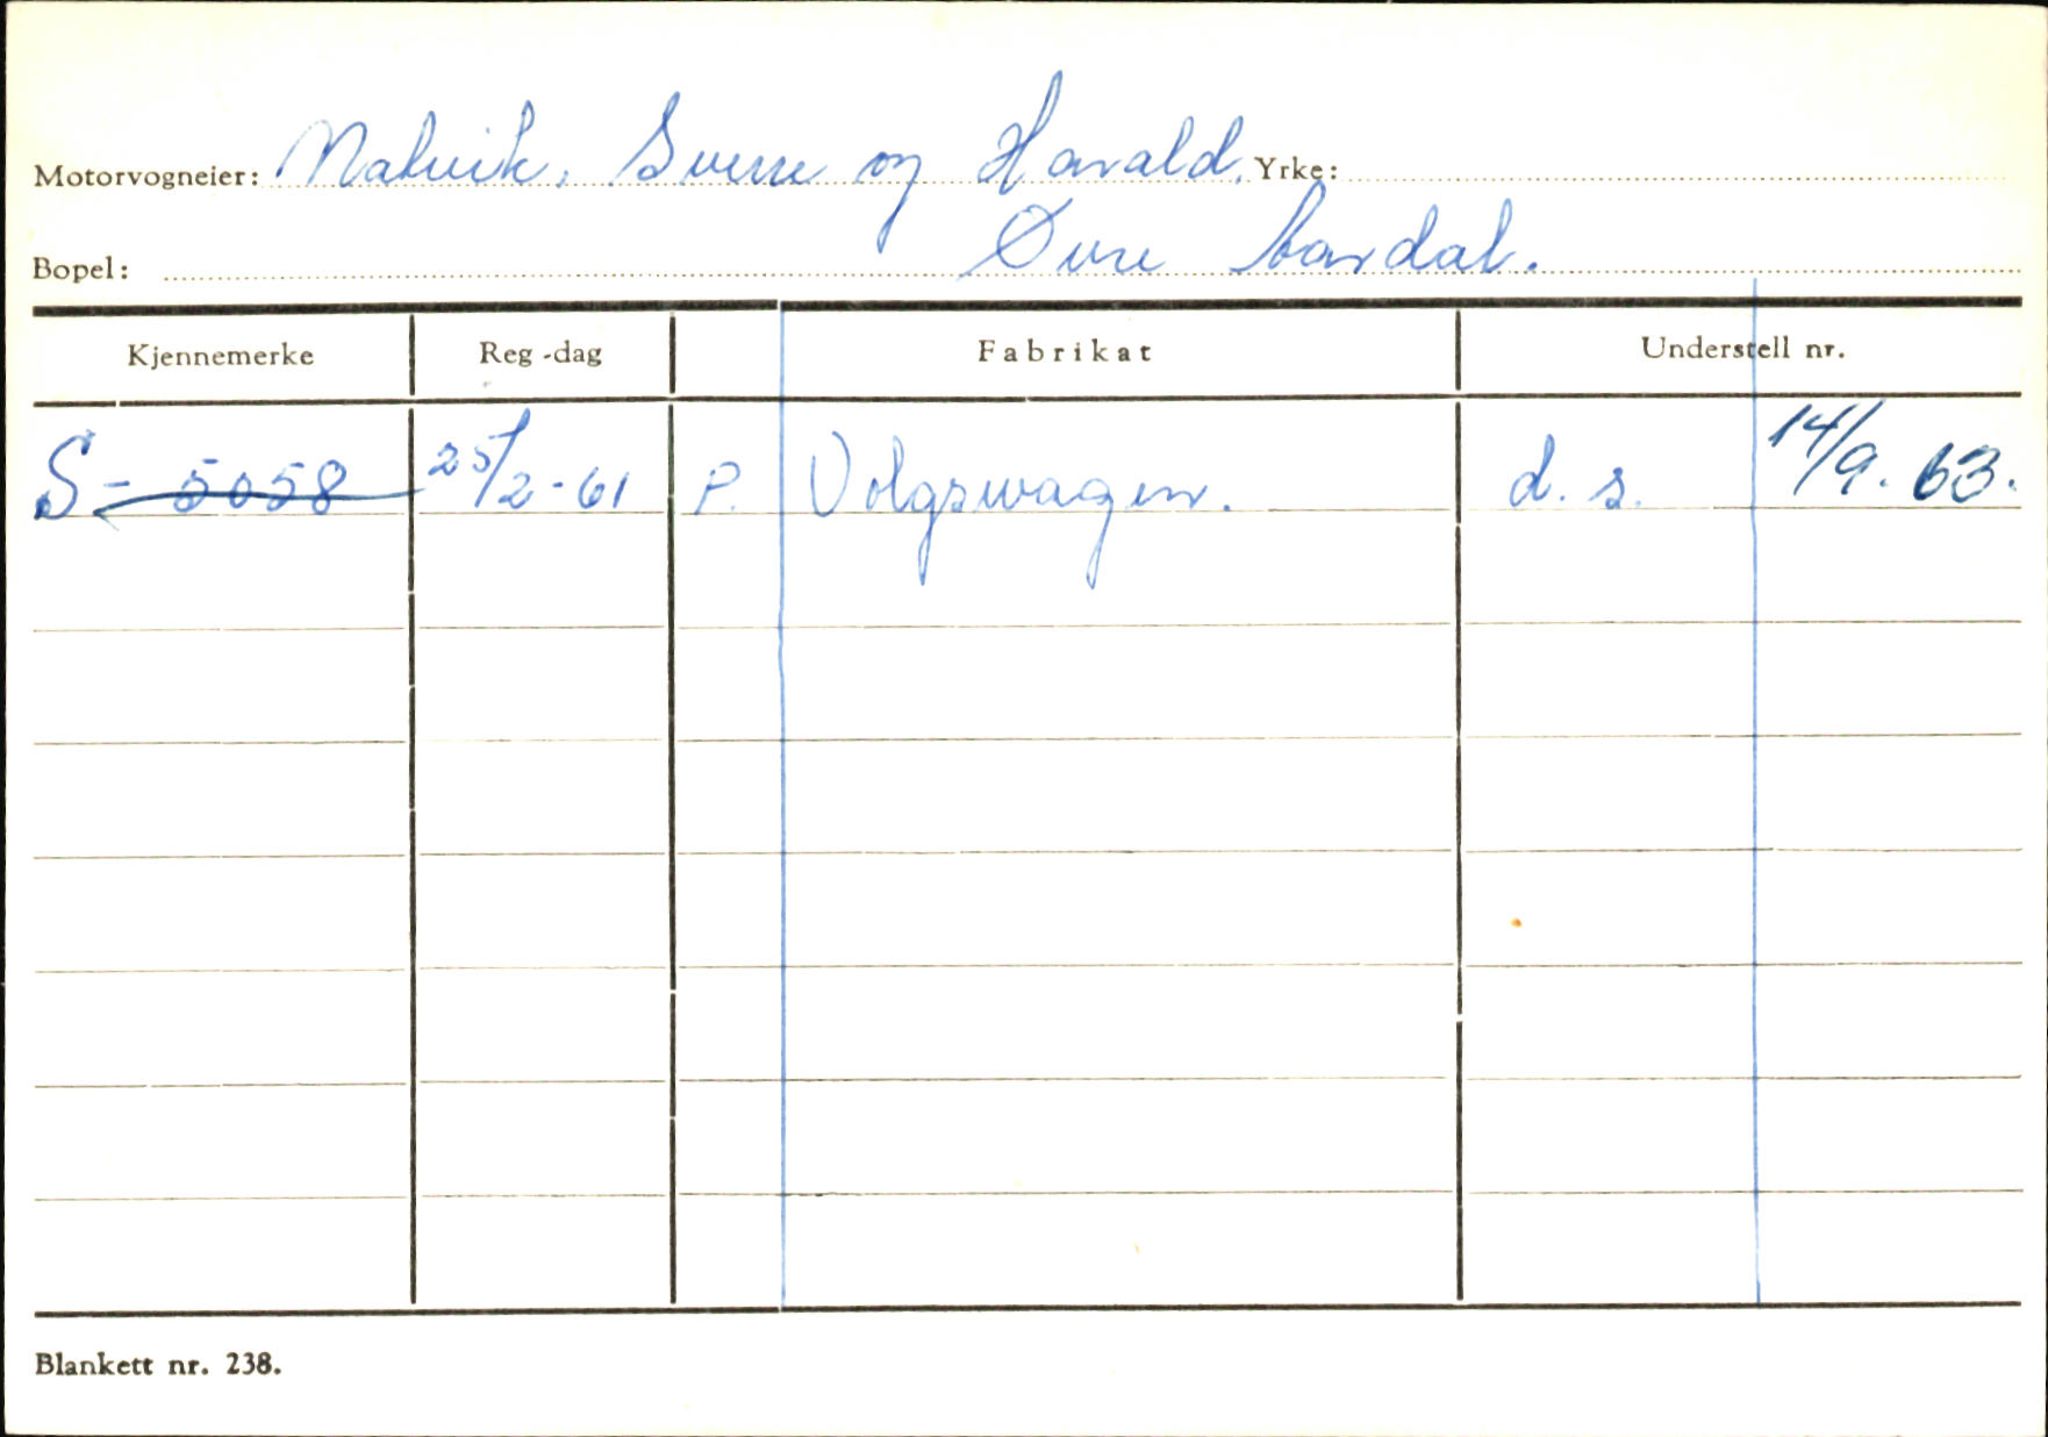 Motorvogneier: Natvik, Sverre og Harald. Yrke:
Bopel: Øvre Aardal.
Kjennemerke Reg-dag Fabrikat Understell nr.
S-5058 25/2-61 P. Volgswagen. d. s. 14/9. 63.
Blankett nr. 238.